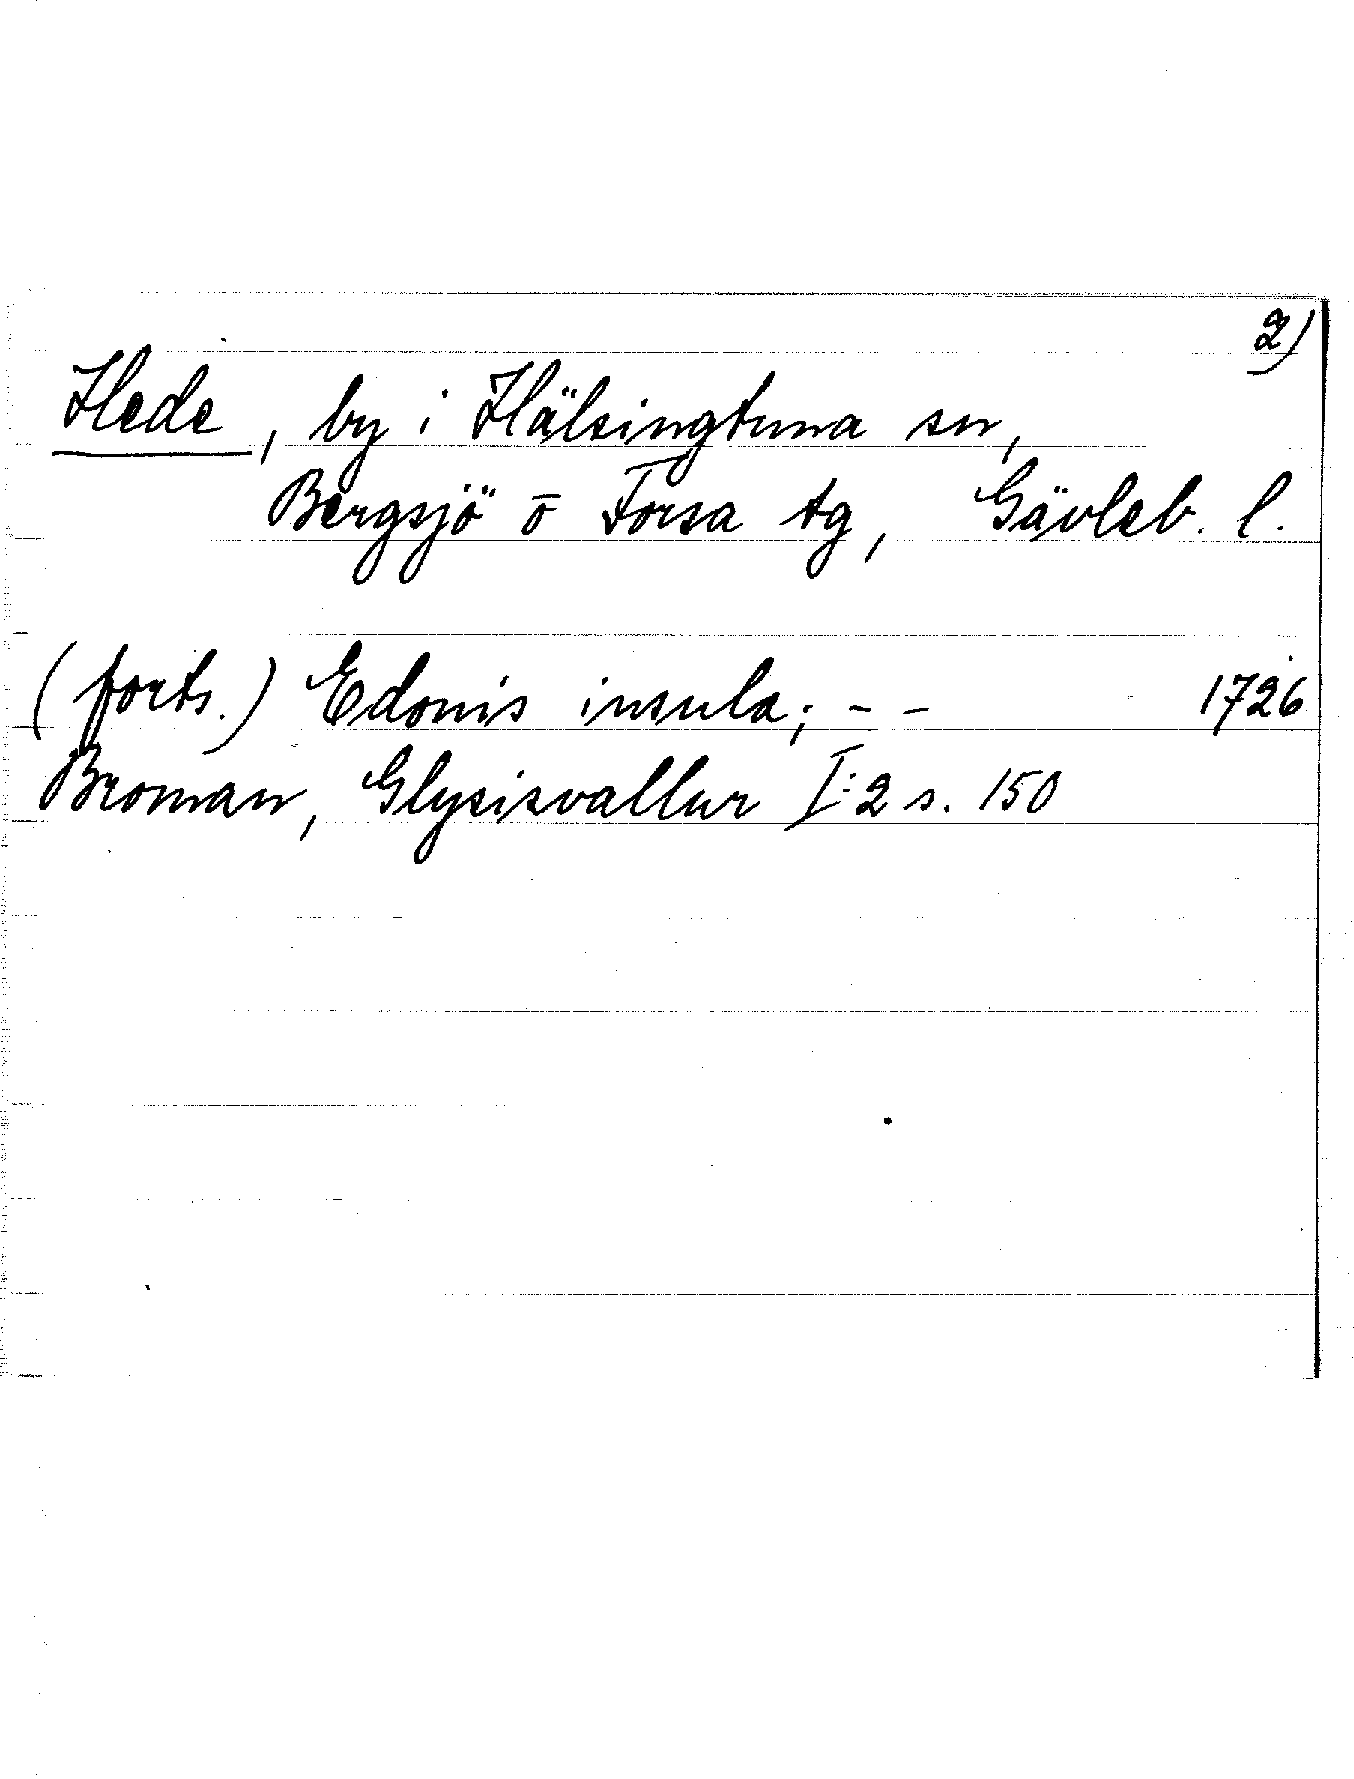 2)
Hede, by i Hälsingtuna sn,
Bergsjö o Forsa tg, Gävleb. l.
(forts.) Edonis insula; - - 1726
Broman, Glysisvallur I:2 s. 150